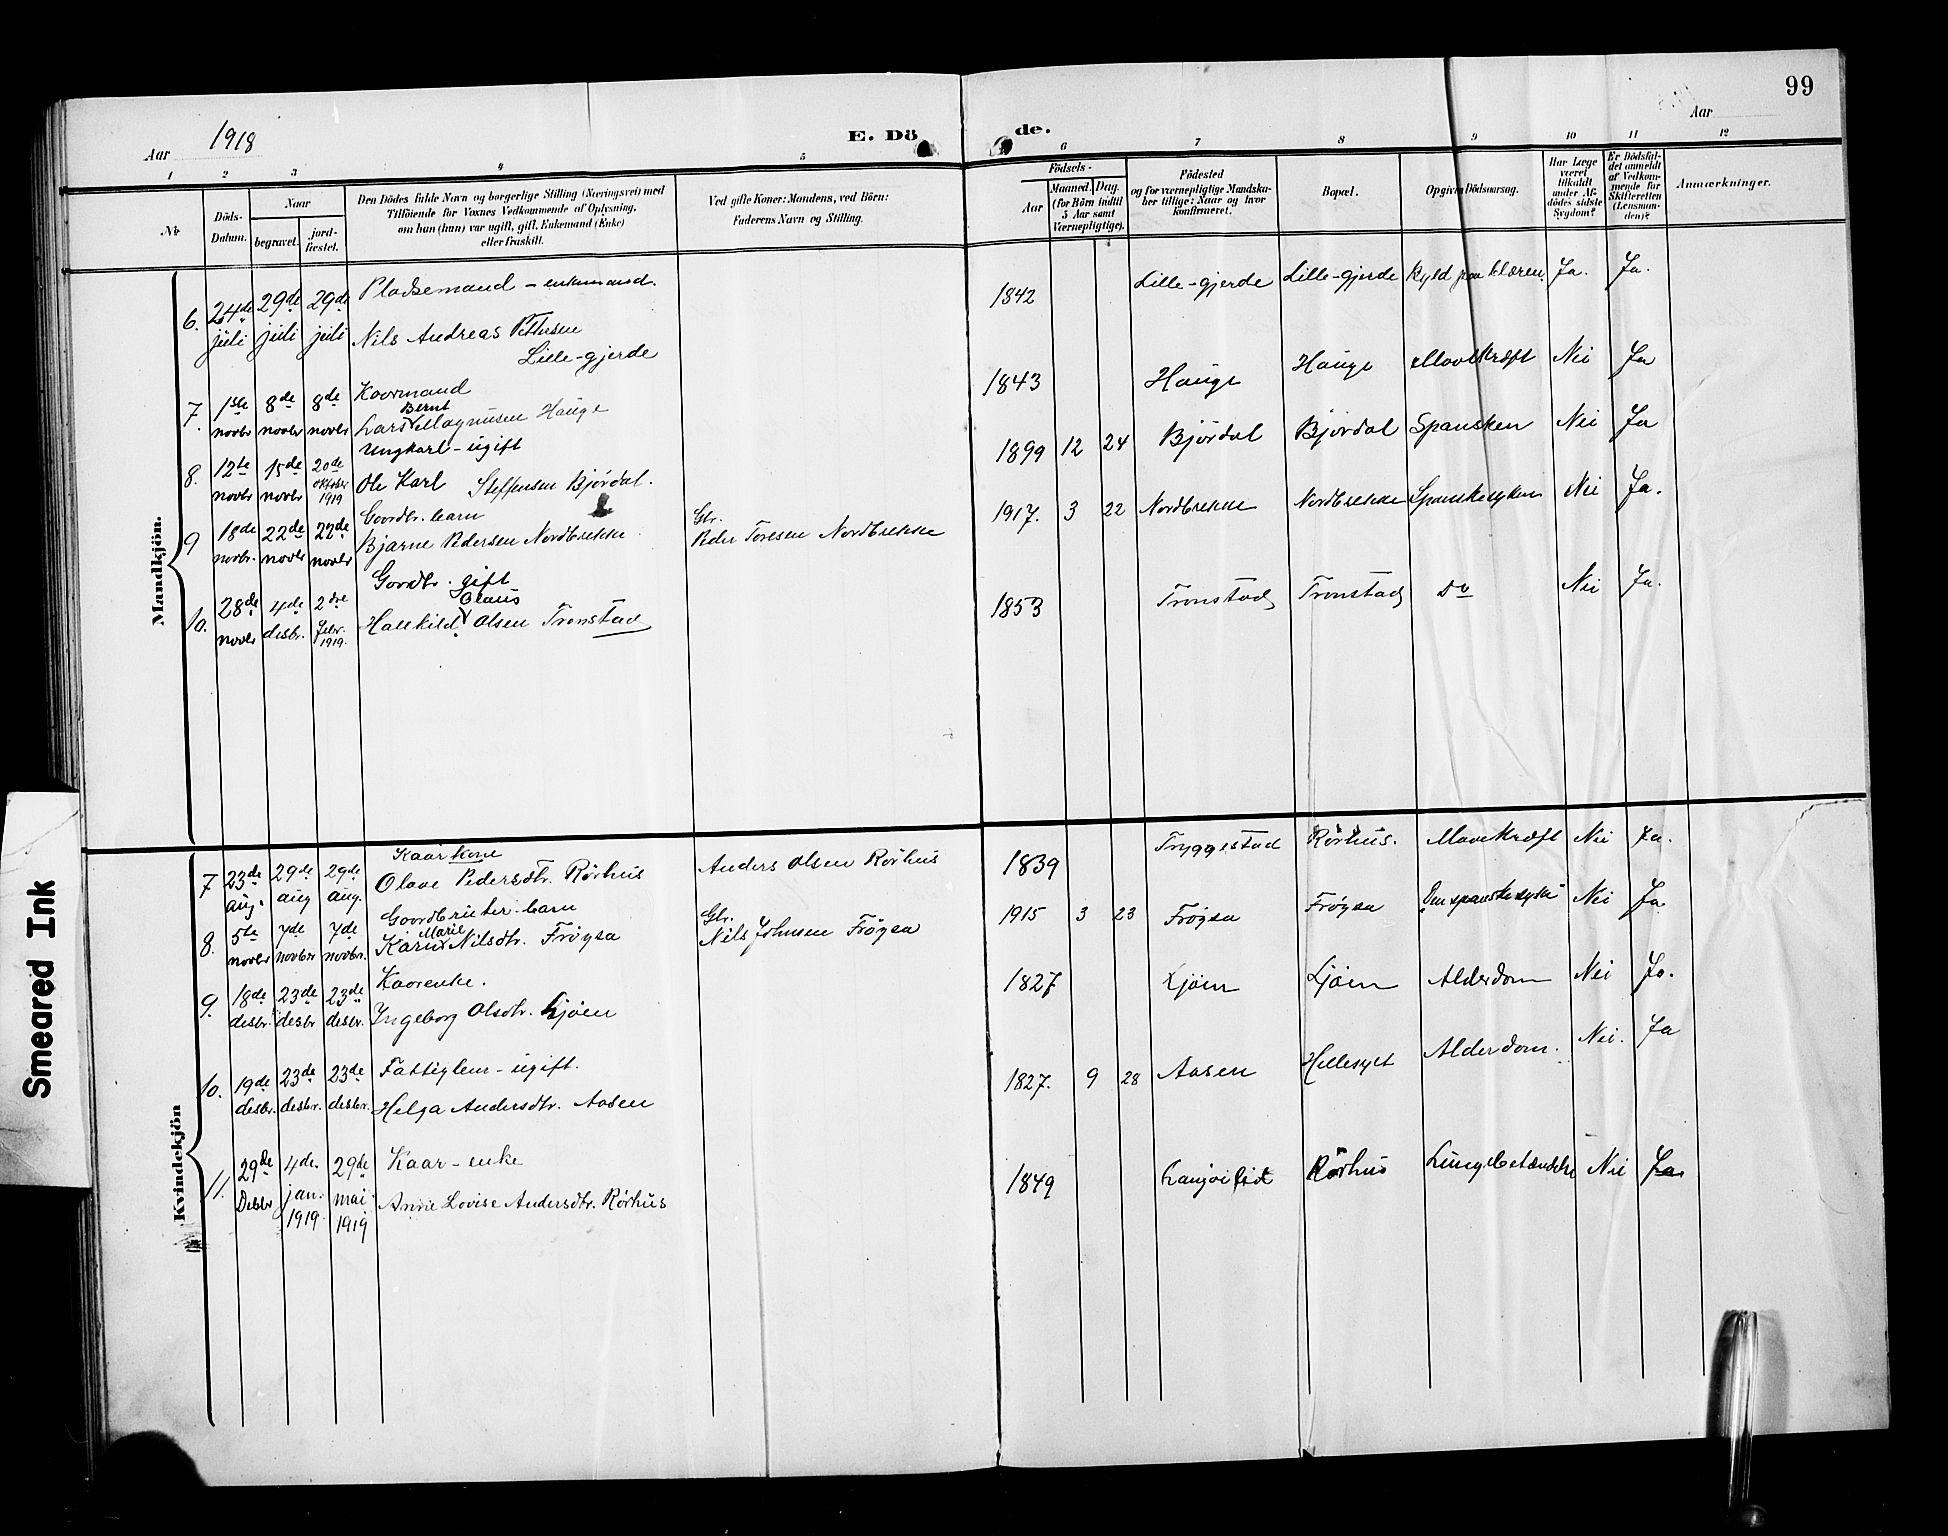 99
Aar 1918
E. Dö de.
Aar
1 2 3 4 5 6 7 8 9 10 11 12
Nr.
Döds-Datum.
Naar
begravet.
jord-fæstet.
Den Dödes fulde Navn og borgerlige Stilling (Næringsvei) med
Tilföiende for Voxnes Vedkommende af Oplysning,
om han (hun) var ugift, gift, Enkemand (Enke)
eller fraskilt.
Ved gifte Koner: Mandens, ved Börn:
Faderens Navn og Stilling.
Födsels-
Aar
Maaned. Dag.
(for Börn indtil
5 Aar samt
Værnepligtige).
Födested
og for værnepligtige Mandska-
ber tillige: Naar og hvor
konfirmeret.
Bopæl.
Opgiven Dödsaarsag.
Har Læge
været
tilkaldt
under Af-
dödes sidste
Sygdom?
Er Dödsfal-
det anmeldt
af Vedkom-
mende for
Skifteretten
(Lensman-
den)?
Anmærkninger.
Mandkjön.
6. 24de juli 29de juli 29de juli Pladsemand - enkemand.
Nils Andreas Pettersen
Lille-gjerde
1842 Lille-gjerde Lille-gjerde Ja. Ja.
7. 1ste novbr 8de novbr 8de novbr Kaarmand
Bernt
Lars Magnusen Hauge
1843 Hauge Hauge Mavekræft Nei Ja
8. 12te novbr 15de novbr 20de oktober 1919 Ungkarl - ugift
Ole Karl Steffensen Bjørdal.
1899 12 24 Bjørdal Bjørdal Spansken Nei Ja
9 18de novbr. 22de novbr 22de novbr Gaardbr. barn
Bjarne Pedersen Nordbrekke
Gbr.
Peder Toresen Nordbrekke
1917. 3 22 Nordbrekke Nordbrekke Spanskesyken Nei Ja.
10. 28de novbr 4de desbr. 2dre febr. 1919. Gaardbr. gift
Olaus
Hallkild Olsen Tronstad
1853 Tronstad Tronstad Do Nei Ja.
Kvindekjön
7 23de aug. 29de aug 29de aug. Kaarkone
Olave Pedersdtr. Rørhus
Anders Olsen Rørhus
1839 Tryggestad Rørhus. Mavekræft Nei Ja.
8. 5te novbr 7de novbr 7de novbr. Gaardbruker-barn
Marie
Karen Nilsdtr. Frøysa
Gbr.
Nils Johnsen Frøysa
1915 3 23 Frøysa Frøysa Den spanske syke Nei Ja
9. 18de desbr. 23de desbr 23de desbr. Kaarenke.
Ingeborg Olsdtr. Ljøen
1827 Ljøen Ljøen Alderdom Nei Ja.
10. 19de desbr. 23de desbr. 23de desbr. Fattiglem - ugift.
Helga Andersdtr. Aasen
1827. 9 28 Aasen Hellesylt Alderdom. Nei. Ja
11. 29de Desbr 4de. jan. 1919 29de mai 1919 Kaar-enke
Anne Lovise Andersdtr. Rørhus
1849 Rørhus Lungebetændelse Nei Ja
Smeared Ink